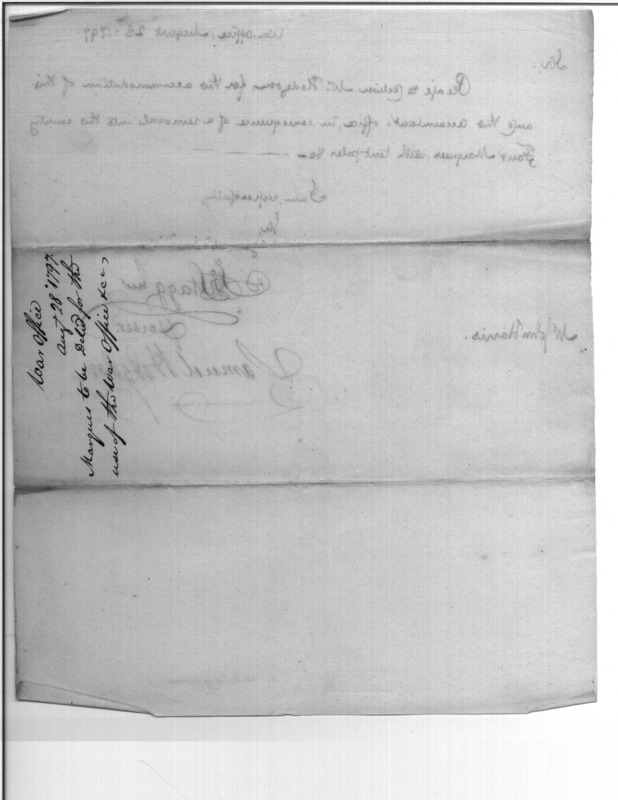 War Office
Augt 28 1797.
Marques to be Deld for the
use of the War Office &c
War office, August 28. 1797
Sir.
Please to deliver Mr Hodgson for the accommodation of this
and the accountants office, in consequence of a removal into the county
Four Marques, with tent poles &c
I am respectfully
Mr John Harris.
Samuel Hodgson